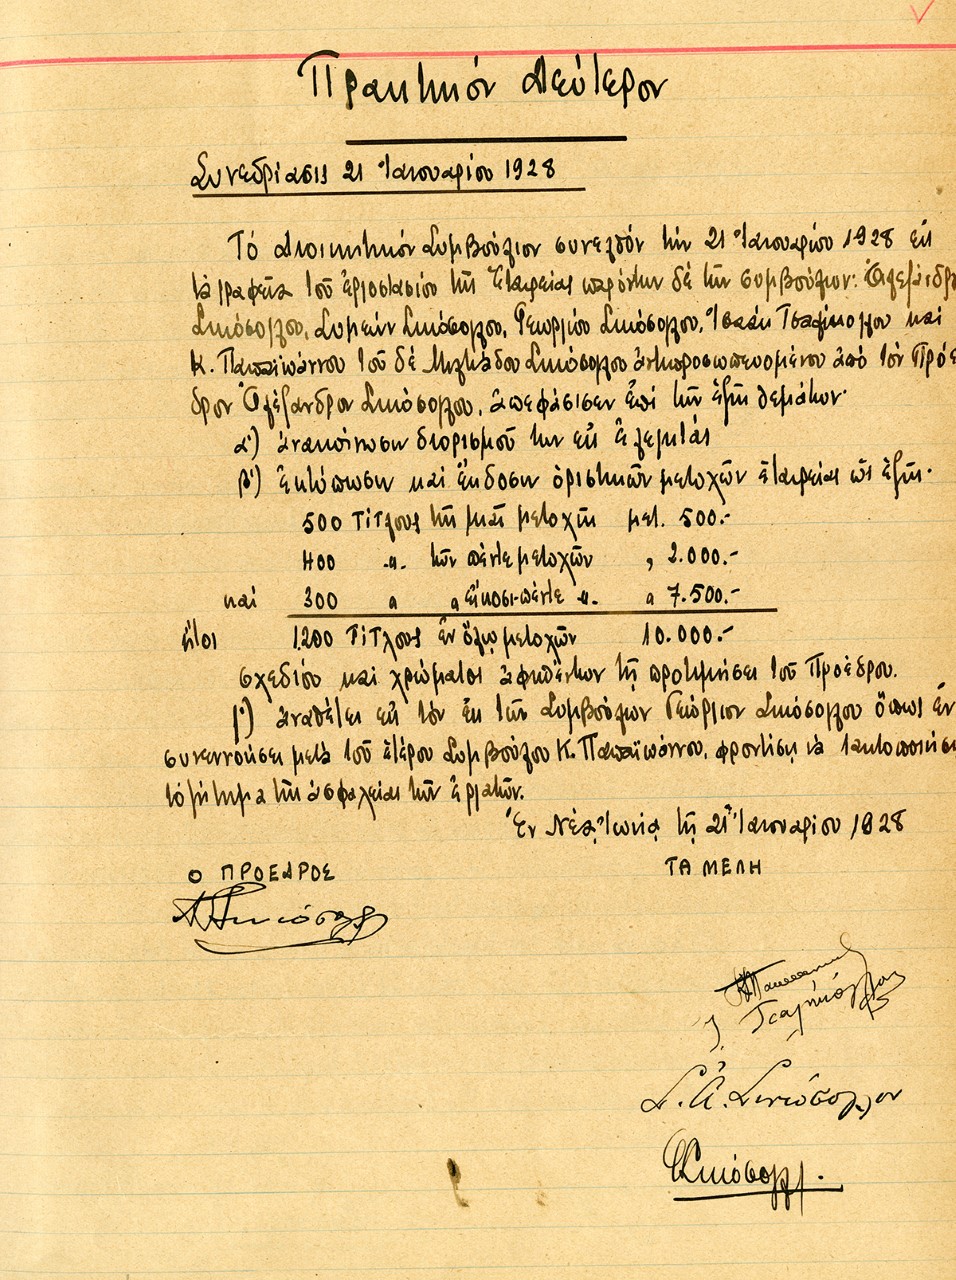 Πρακτικόν Δεύτερον
Συνεδρίασις 21 Ἰανουαρίου 1928
Τό Διοικητικόν Συμβούλιον συνελθόν τήν 21 Ἰανουαρίου 1928 εἰς
τά γραφεῖα τοῦ ἐργοστασίου τῆς Ἑταιρείας παρόντων δέ τῶν συμβούλων: Ἀλεξάνδρου
Σινιόσογλου, Συμεών Σινιόσογλου, Γεωργίου Σινιόσογλου, Ἰσαάκ Τσαλίκογλου καί
Κ. Παπαϊωάννου τοῦ δέ Μιλτιάδου Σινιόσογλου ἀντιπροσωπευομένου ἀπό τόν Πρόε
δρον Ἀλέξανδρον Σινιόσογλου, ἀπεφάσισεν ἐπί τῶν ἑξῆς θεμάτων·
α') ἀνακοίνωσιν διορισμοῦ των εἰς
β') Ἐκτύπωσιν καί ἔκδοσιν ὁριστικῶν μετοχῶν ἑταιρείας ὡς ἑξῆς·
500 Τίτλους τῆς μιᾶς μετοχῆς μετ. 500.-
400 -"- τῶν πέντε μετοχῶν " 2.000.-
καί 300 " " εἴκοσι-πέντε ". " 7.500.-
ἤτοι 1.200 Τίτλους ἐν ὅλῳ μετοχῶν 10.000.-
σχεδίου καί χρώματος ἀφεθέντων τῇ προτιμήσει τοῦ Προέδρου.
γ') ἀναθέτει εἰς τόν ἐκ τῶν Συμβούλων Γεώργιον Σινιόσογλου ὅπως ἐν
συνεννοήσει μετά τοῦ ἑτέρου Συμβούλου Κ. Παπαϊωάννου, φροντίσῃ νά τακτοποιήσῃ
τό ζήτημα τῆς ἀσφαλείας τῶν ἐργατῶν.
Ἐν Νέᾳ Ἰωνίᾳ τῇ 21ῃ Ἰανουαρίου 1928
Ο ΠΡΟΕΔΡΟΣ ΤΑ ΜΕΛΗ
Α Σινιόσογλου
Κ Παπαϊωάννου
Ι. Τσαλίκογλου
Σ. Α. Σινιόσογλου
Γ Σινιόσογλου